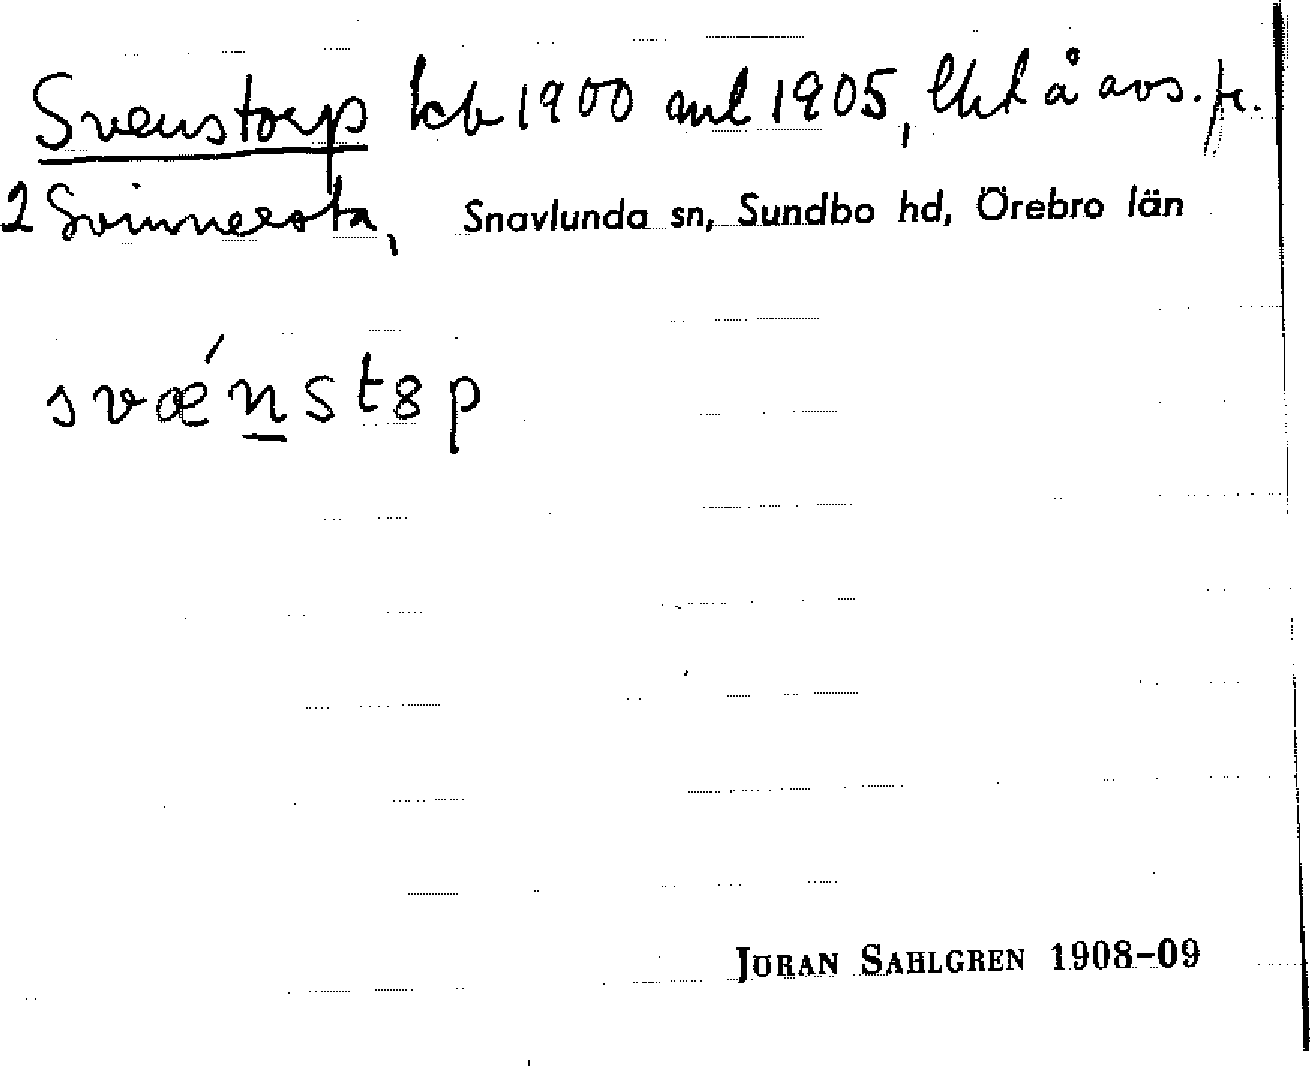 Svenstorp kb 1900 ml 1905, lht å avs. fr.
2 Svinnersta, Snavlunda sn, Sundbo hd, Örebro län
svǽn̲st8p
JÖRAN SAHLGREN 1908-09